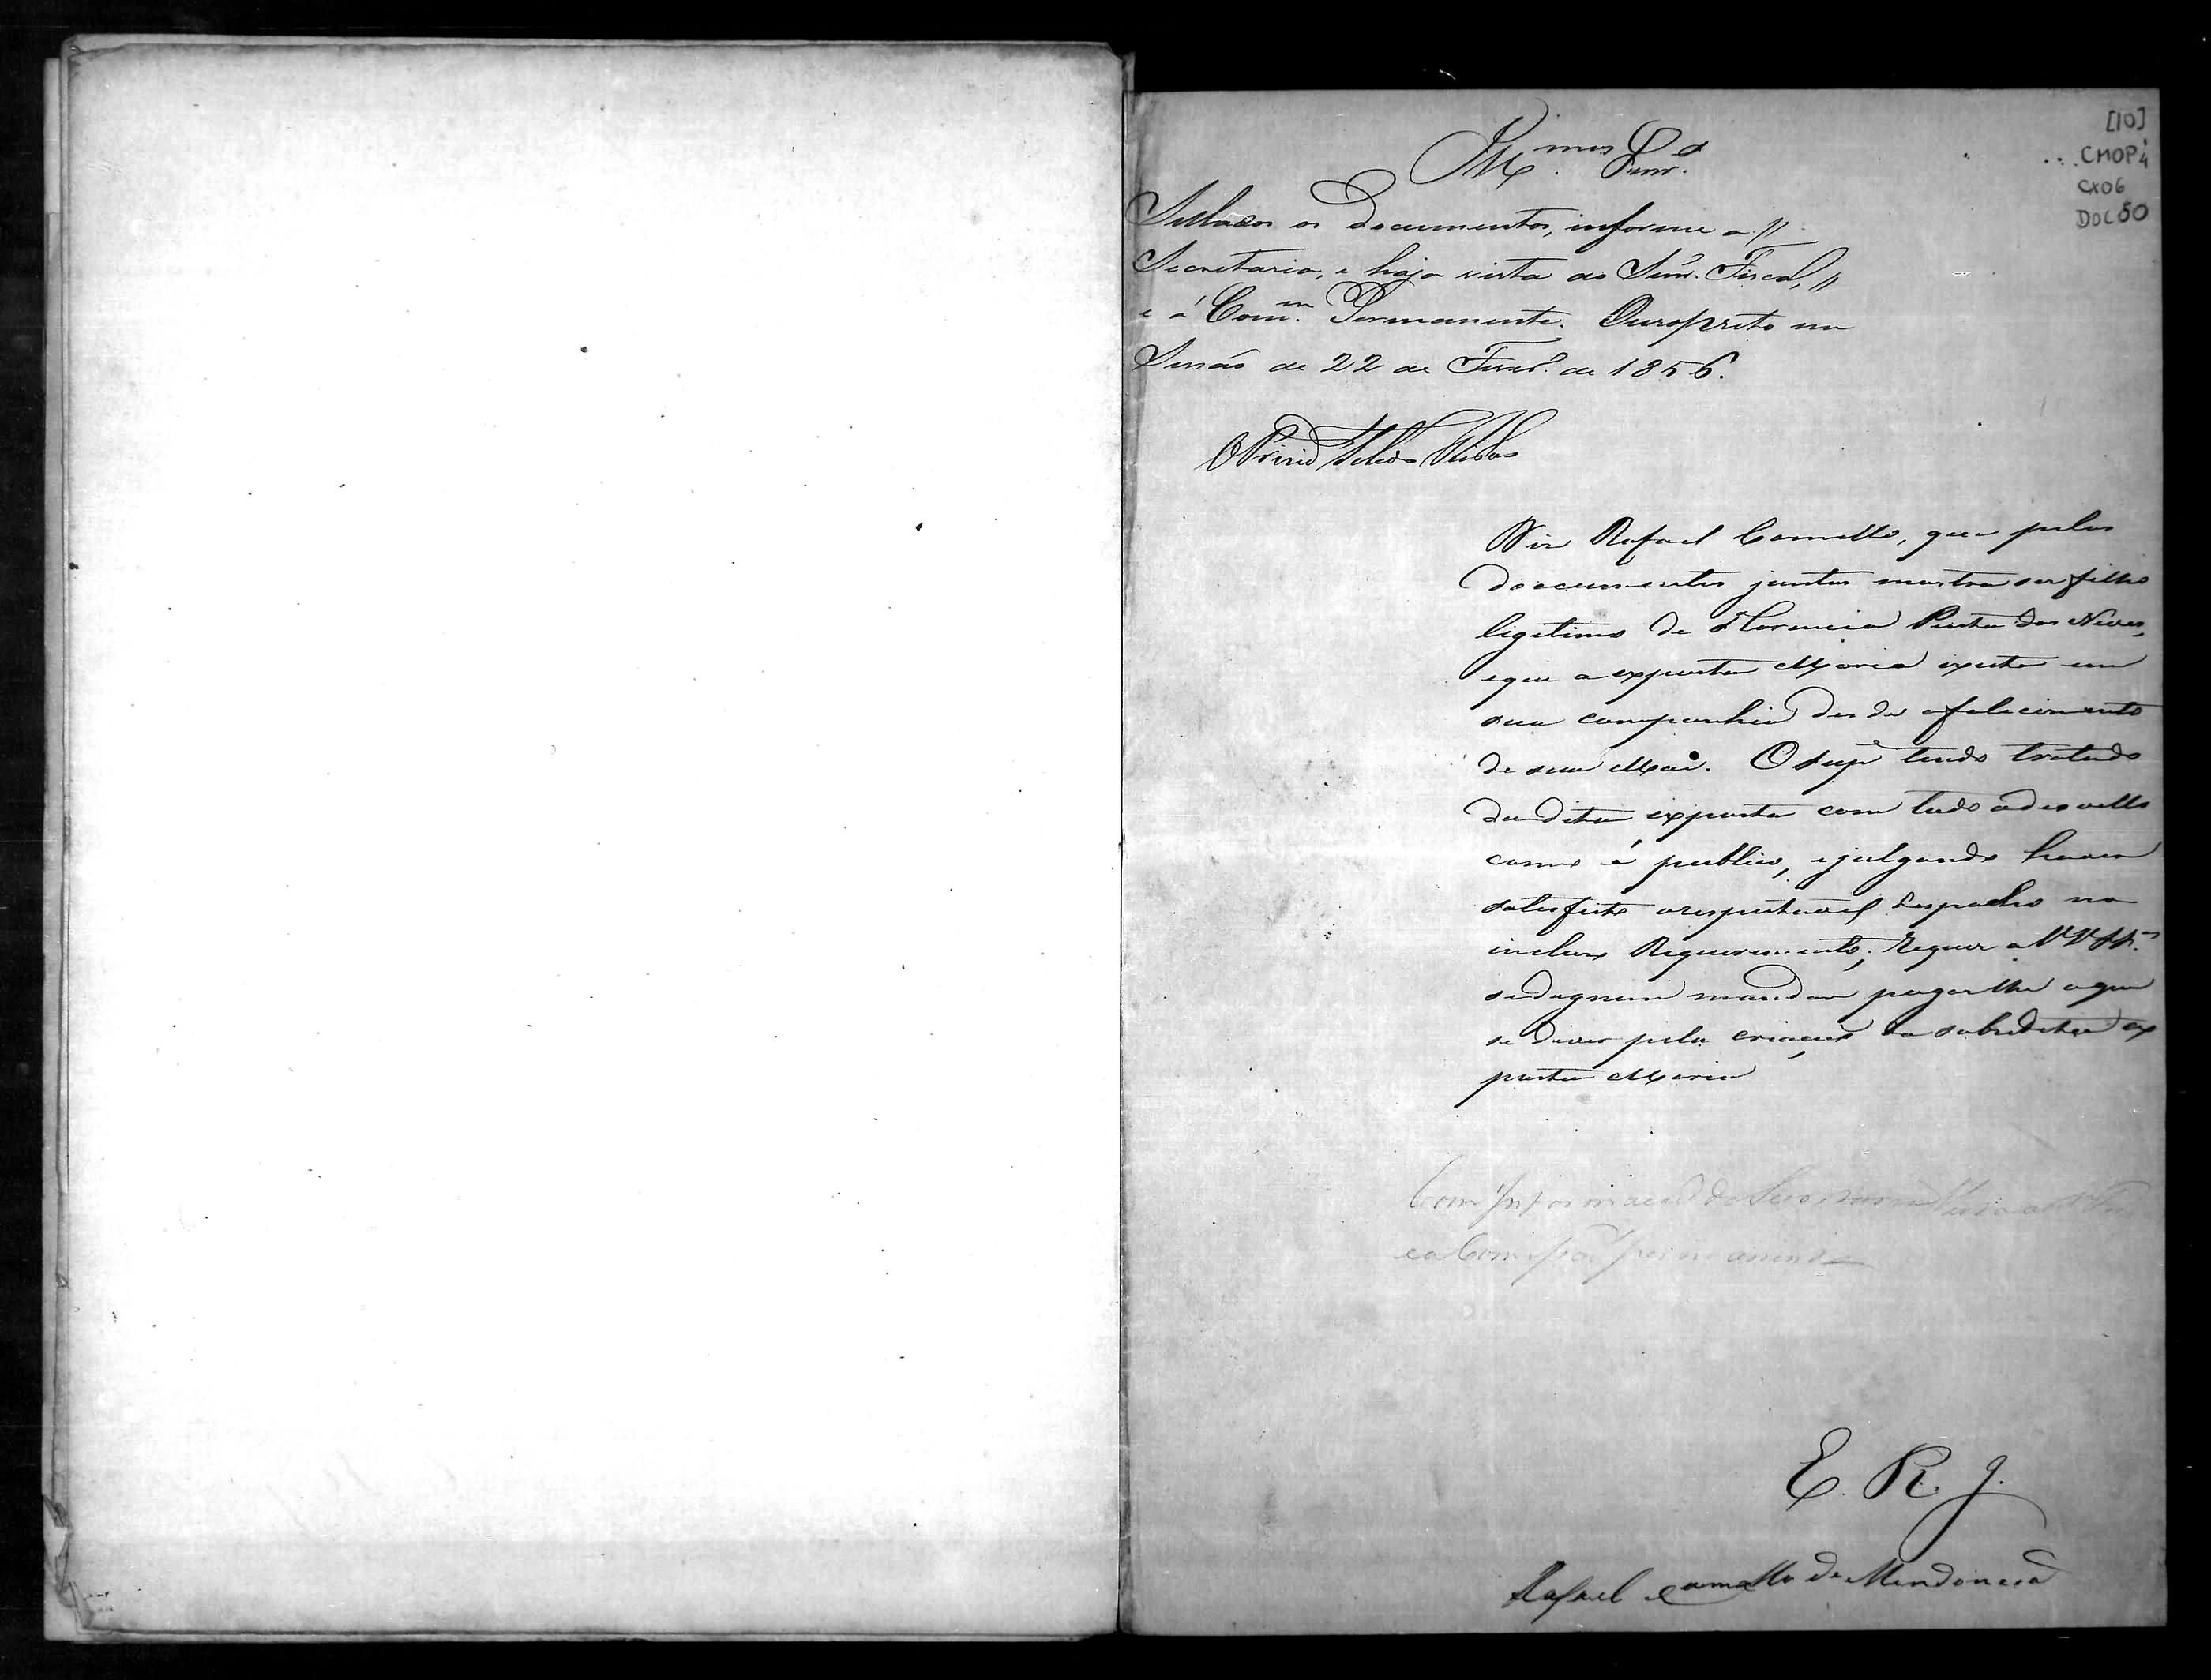 [10]
CMOP
CX06
DOC 50
Ill.mos Senr.es
Sellados os documentos, informe a //
Secretaria, e haja vista ao Senr. Fiscal, //
e á Com.m Permanente. Ouropreto em
Sessão de 22 de Fevr.o de 1856.
Diz Rafael Camello, que pelos
documentos juntos mostra ser filho
ligitimo de Florencia Pinta das Neves,
e que a exposta Maria existe em
sua companhia desde o falecimento
de sua Mai. O Supe tendo tratado
da dita exposta com todo o desvello
como é publico, e julgando haver
satisfeito o respeitavel despacho no
incluso Requerimento; Requer a VVSS.as
se dignem mandar pagar lhe o que
se dever pela criação da sobredita ex
posta Maria
Com Informação do Secretario
e a Comissão permanente
E. R. J.
Rafael Camello de Mendonca